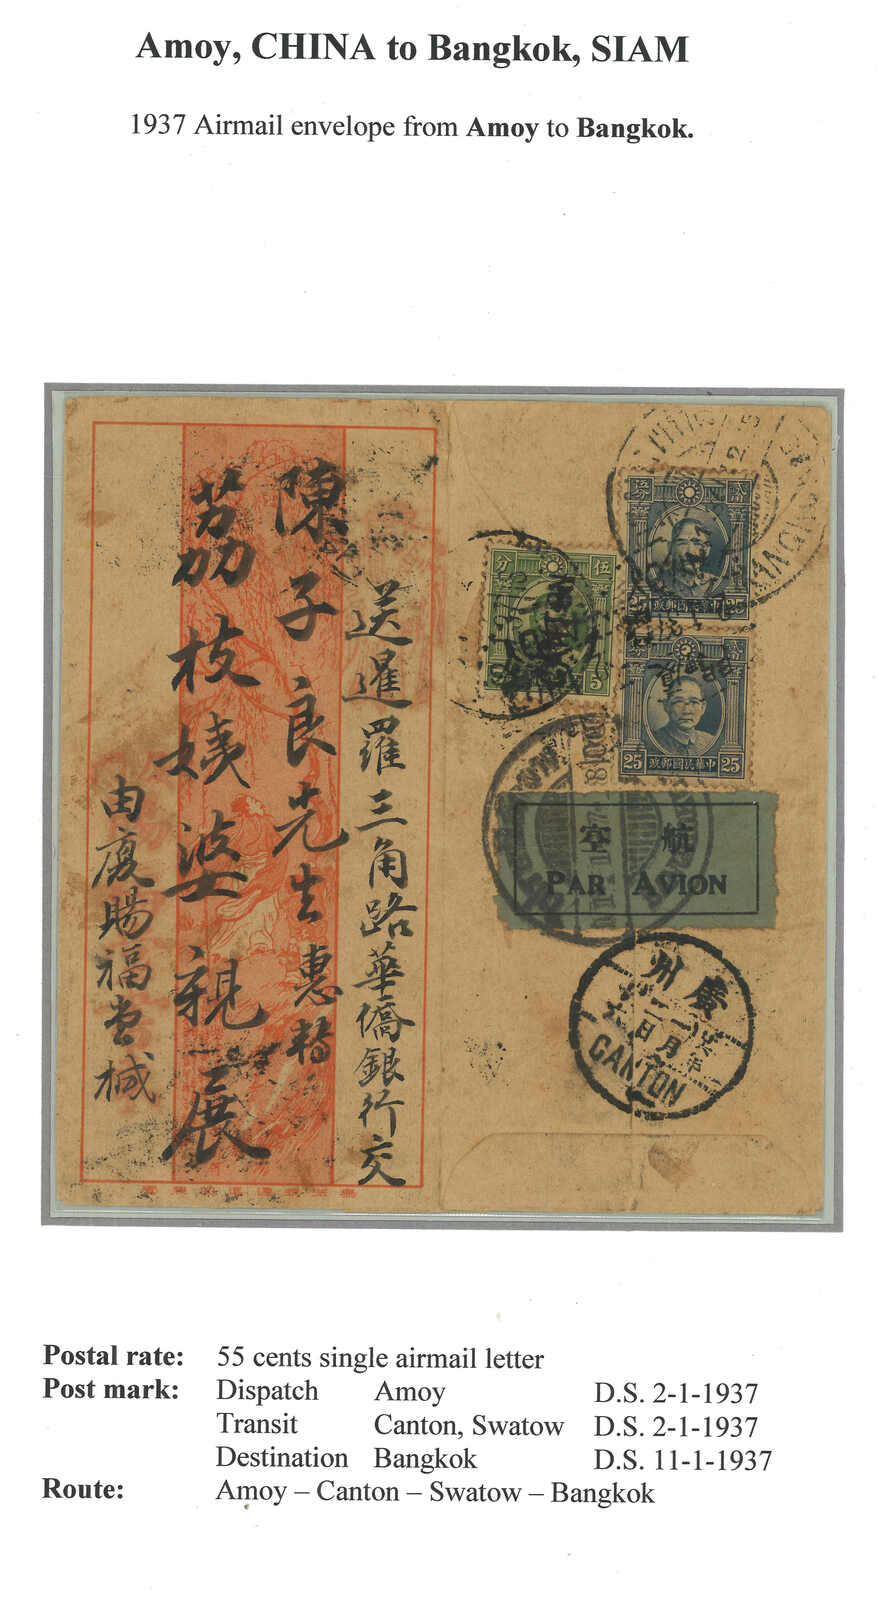 Amoy, CHINA to Bangkok, SIAM
1937 Airmail envelope from Amoy to Bangkok.
送暹羅三角路華僑銀行交
陳子良先生惠轉
荔枝姨婆親展
由廈賜福堂械
伍
分
5
25
25
中華民國郵政
25
25
中華民國郵政
航空
PAR AVION
廣州
CANTON
Postal rate: 55 cents single airmail letter
Post mark: Dispatch Amoy D.S. 2-1-1937
Transit Canton, Swatow D.S. 2-1-1937
Destination Bangkok D.S. 11-1-1937
Route: Amoy – Canton – Swatow – Bangkok